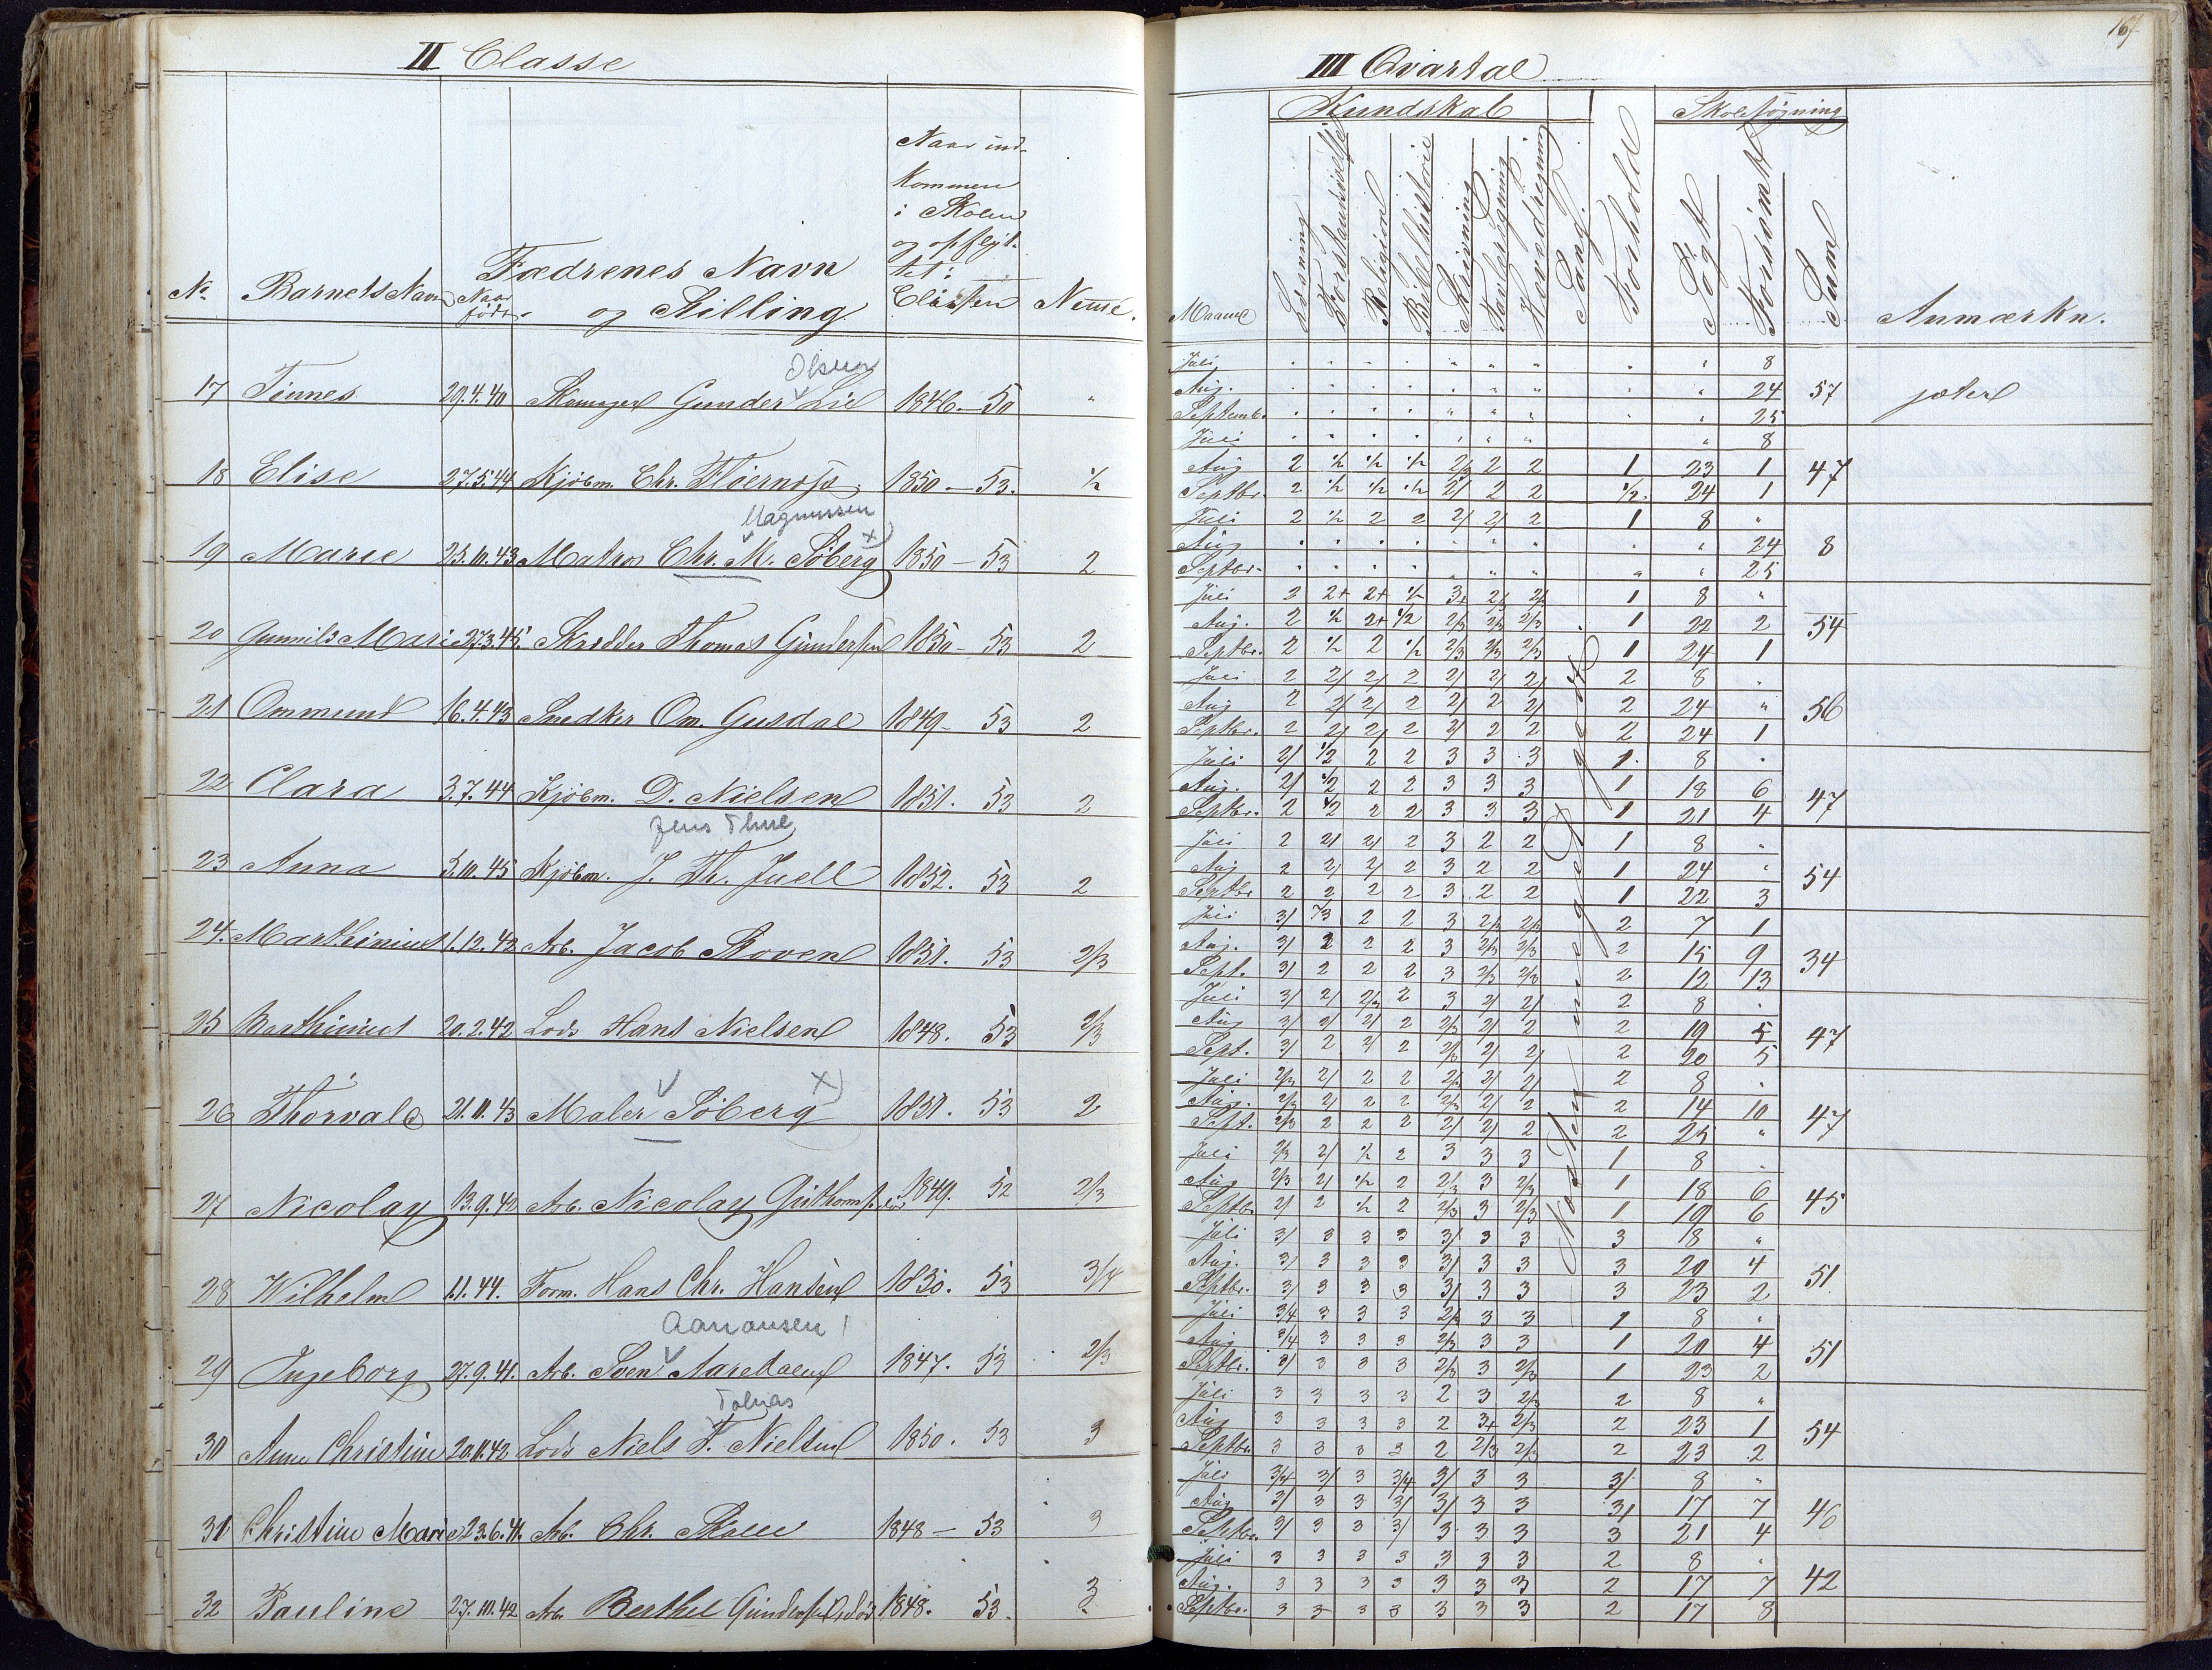 II Classe
No Barnets Navn Naar født. Fædrenes Navn og Stilling Naar ind-kommen i Skolen og opflyt-tet i Classen Nemme.
Olsen
17 Tinnes 29.4.40 Gunder Lie 1846.-50 "
18 Elise 27.5.44 Kjøbm. Chr. 1850-53. 1/2
Magnussen
19 Marie 25.10.43 Matros Chr. M. Søberg x) 1850-53 2
20 Gunnild Marie 27.3.45. Skrædder Thomas Gundersen 1850-53 2
21 Ommund 16.4.43 Snedker Om. Gusdal 1849-53 2
22 Clara 3.7.44 Kjøbm. D. Nielsen 1851. 53 2
Jens Thue
23 Anna 5.10.45 Kjøbm. J. Th. Juell 1852. 53 2
24. Marthinius 1.12.42 Arb. Jacob Skoven 1851. 53 2/3
25 Marthinius 20.2.42 Lods Hans Nielsen 1848. 53 2/3
26 Thorvald 21.11.43 Maler Søberg x) 1851. 53 2
27 Nicolay 13.9.42 Arb. Nicolay 1849. 52 2/3
28 Wilhelm 1.1.44. Form. Hans Chr. Hansen 1850. 53 3/4
Aanonsen
29 Ingeborg 27.9.41. Arb. Sven Aaredalen 1847. 53 2/3
Tobias
30 Anne Christine 20.11.42 Lods Niels T. Nielsen 1850. 53 3
31 Christine Marie 23.6.41. Arb. Chr. 1848-53 3
32 Pauline 27.10.42 Arb. Berthel Gundersen, død 1848. 53. 3
167
III Qvartal
Kundskab Skolesøgning
Maaned Læsning Forstandsøvelse Religion Bibelhistorie Skrivning Tavleregning Hovedregning Sang. Forhold Søgt Forsømt Saml Anmærkn.
Juli . . . . " " " . " 8
Aug. . . . . " " " . " 24 57
Septemb. . . . . " " " . " 25
Juli . . . . " " " " 8
Aug 2 1/2 1/2 1/2 2/3 2 2 1 23 1 47
Septbr. 2 1/2 1/2 1/2 2/ 2 2 1/2. 24 1
Juli 2 1/2 2 2 2/ 2/ 2 1 8 "
Aug . . . . " " " . " 24 8
Septbr. . . . . " " " " " 25
Juli 2 2+ 2+ 1/2 3+ 2/3 2/3 1 8 "
Aug. 2 1/2 2+ 1/2 2/3 2/3 2/3 1 22 2 54
Septbr. 2 1/2 2 1/2 2/3 2/3 2/3 1 24 1
Juli 2 2/ 2/ 2 2/ 2/ 2/ 2 8 "
Aug 2 2/ 2/ 2 2/ 2 2/ 2 24 " 56
Septbr. 2 2/ 2/ 2 2/ 2 2 2 24 1
Juli 2/ 1/2 2 2 3 3 3 1 8 "
Aug. 2/ 1/2 2 2 3 3 3 1 18 6 47
Septbr. 2 1/2 2 2 3 3 3 1 21 4
Juli 2 2/ 2/ 2 3 2 2 1 8 "
Aug 2 2/ 2/ 2 3 2 2 1 24 " 54
Septbr 2 2 2 2 3 2 2 1 22 3
Juli 3/ 2/3 2 2 3 2/3 2/3 2 7 1
Aug. 3/ 2 2 2 3 2/3 2/3 2 15 9 34
Sept. 3/ 2 2 2 3 2/3 2/3 2 12 13
Juli 3/ 2/ 2/3 2 3 2/ 2/ 2 8 "
Aug 3/ 2/ 2/ 2 2/3 2/ 2 2 19 5 47
Sept. 3/ 2 2/ 2 2/3 2/ 2/ 2 20 5
Juli 2/3 2/ 2 2 2/3 2/ 2/ 2 8 "
Aug. 2/3 2/ 2 2 2/3 2/ 2 2 14 10 47
Sept. 2/3 2 2 2 2/ 2/ 2 2 25 "
Juli 2/3 2/ 1/2 2 3 3 3 1 8 "
Aug 2/3 2/ 1/2 2 2/3 3 2/3 1 18 6 45
Septbr. 2/ 2 1/2 2 2/3 3 2/3 1 19 6
Juli 3/ 3 3 3 3/ 3 3 3 8 "
Aug. 3/ 3 3 3 3/ 3 3 3 20 4 51
Septbr. 3/ 3 3 3 3/ 3 3 3 23 2
Juli 3/4 3 3 3 2/3 3 3 1 8 "
Aug 3/4 3 3 3 2/3 3 3 1 20 4 51
Septbr. 3/ 3 3 3 2/3 3 2/3 1 23 2
Juli 3 3 3 3 2 3 2/3 2 8 "
Aug 3 3 3 3 2 3+ 2/3 2 23 1 54
Septbr. 3 3 3 3 2 2/3 2/3 2 23 2
Juli 3/4 3/ 3 3/4 3/ 3 3 3/ 8 "
Aug 3/ 3 3 3/ 3/ 3 3 3/ 17 7 46
Septbr. 3/ 3 3 3/ 3 3 3 3 21 4
Juli 3 3 3 3 3 3 3 2 8 "
Aug. 3 3 3 3 3 3 3 2 17 7 42
Septbr. 3 3 3 3 3 3 3 2 17 8
Nesten meget godt.